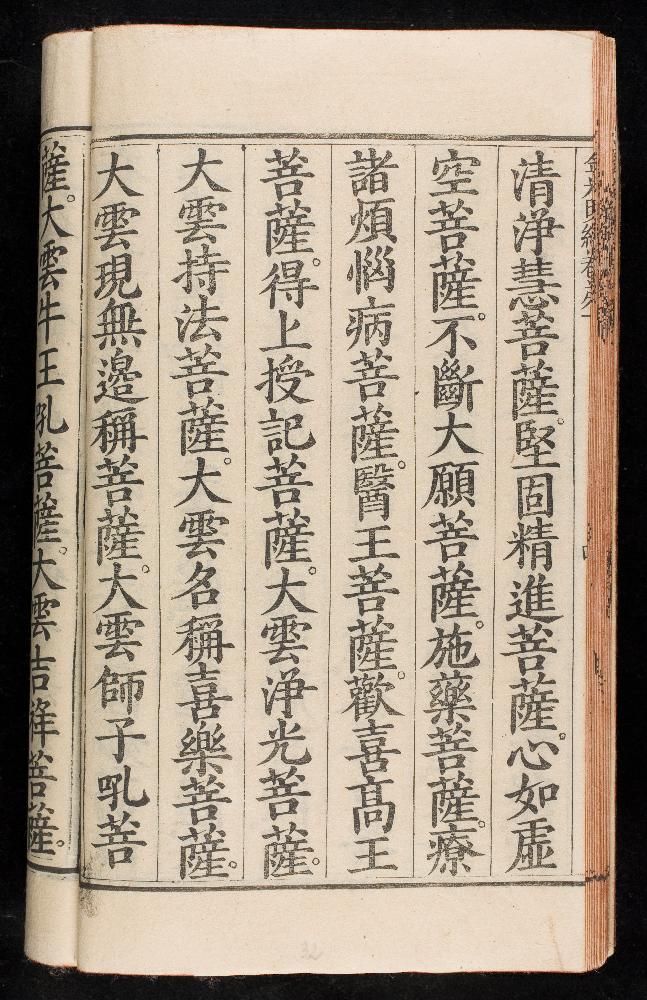 金光明經卷第一
清淨慧菩薩。堅固精進菩薩。心如虛
空菩薩。不斷大願菩薩。施藥菩薩。療
諸煩惱病菩薩。醫王菩薩。歡喜高王
菩薩。得上授記菩薩。大雲淨光菩薩。
大雲持法菩薩。大雲名稱喜樂菩薩。
大雲現無邊稱菩薩。大雲師子吼菩
薩。大雲牛王吼菩薩。大雲吉祥菩薩。
32